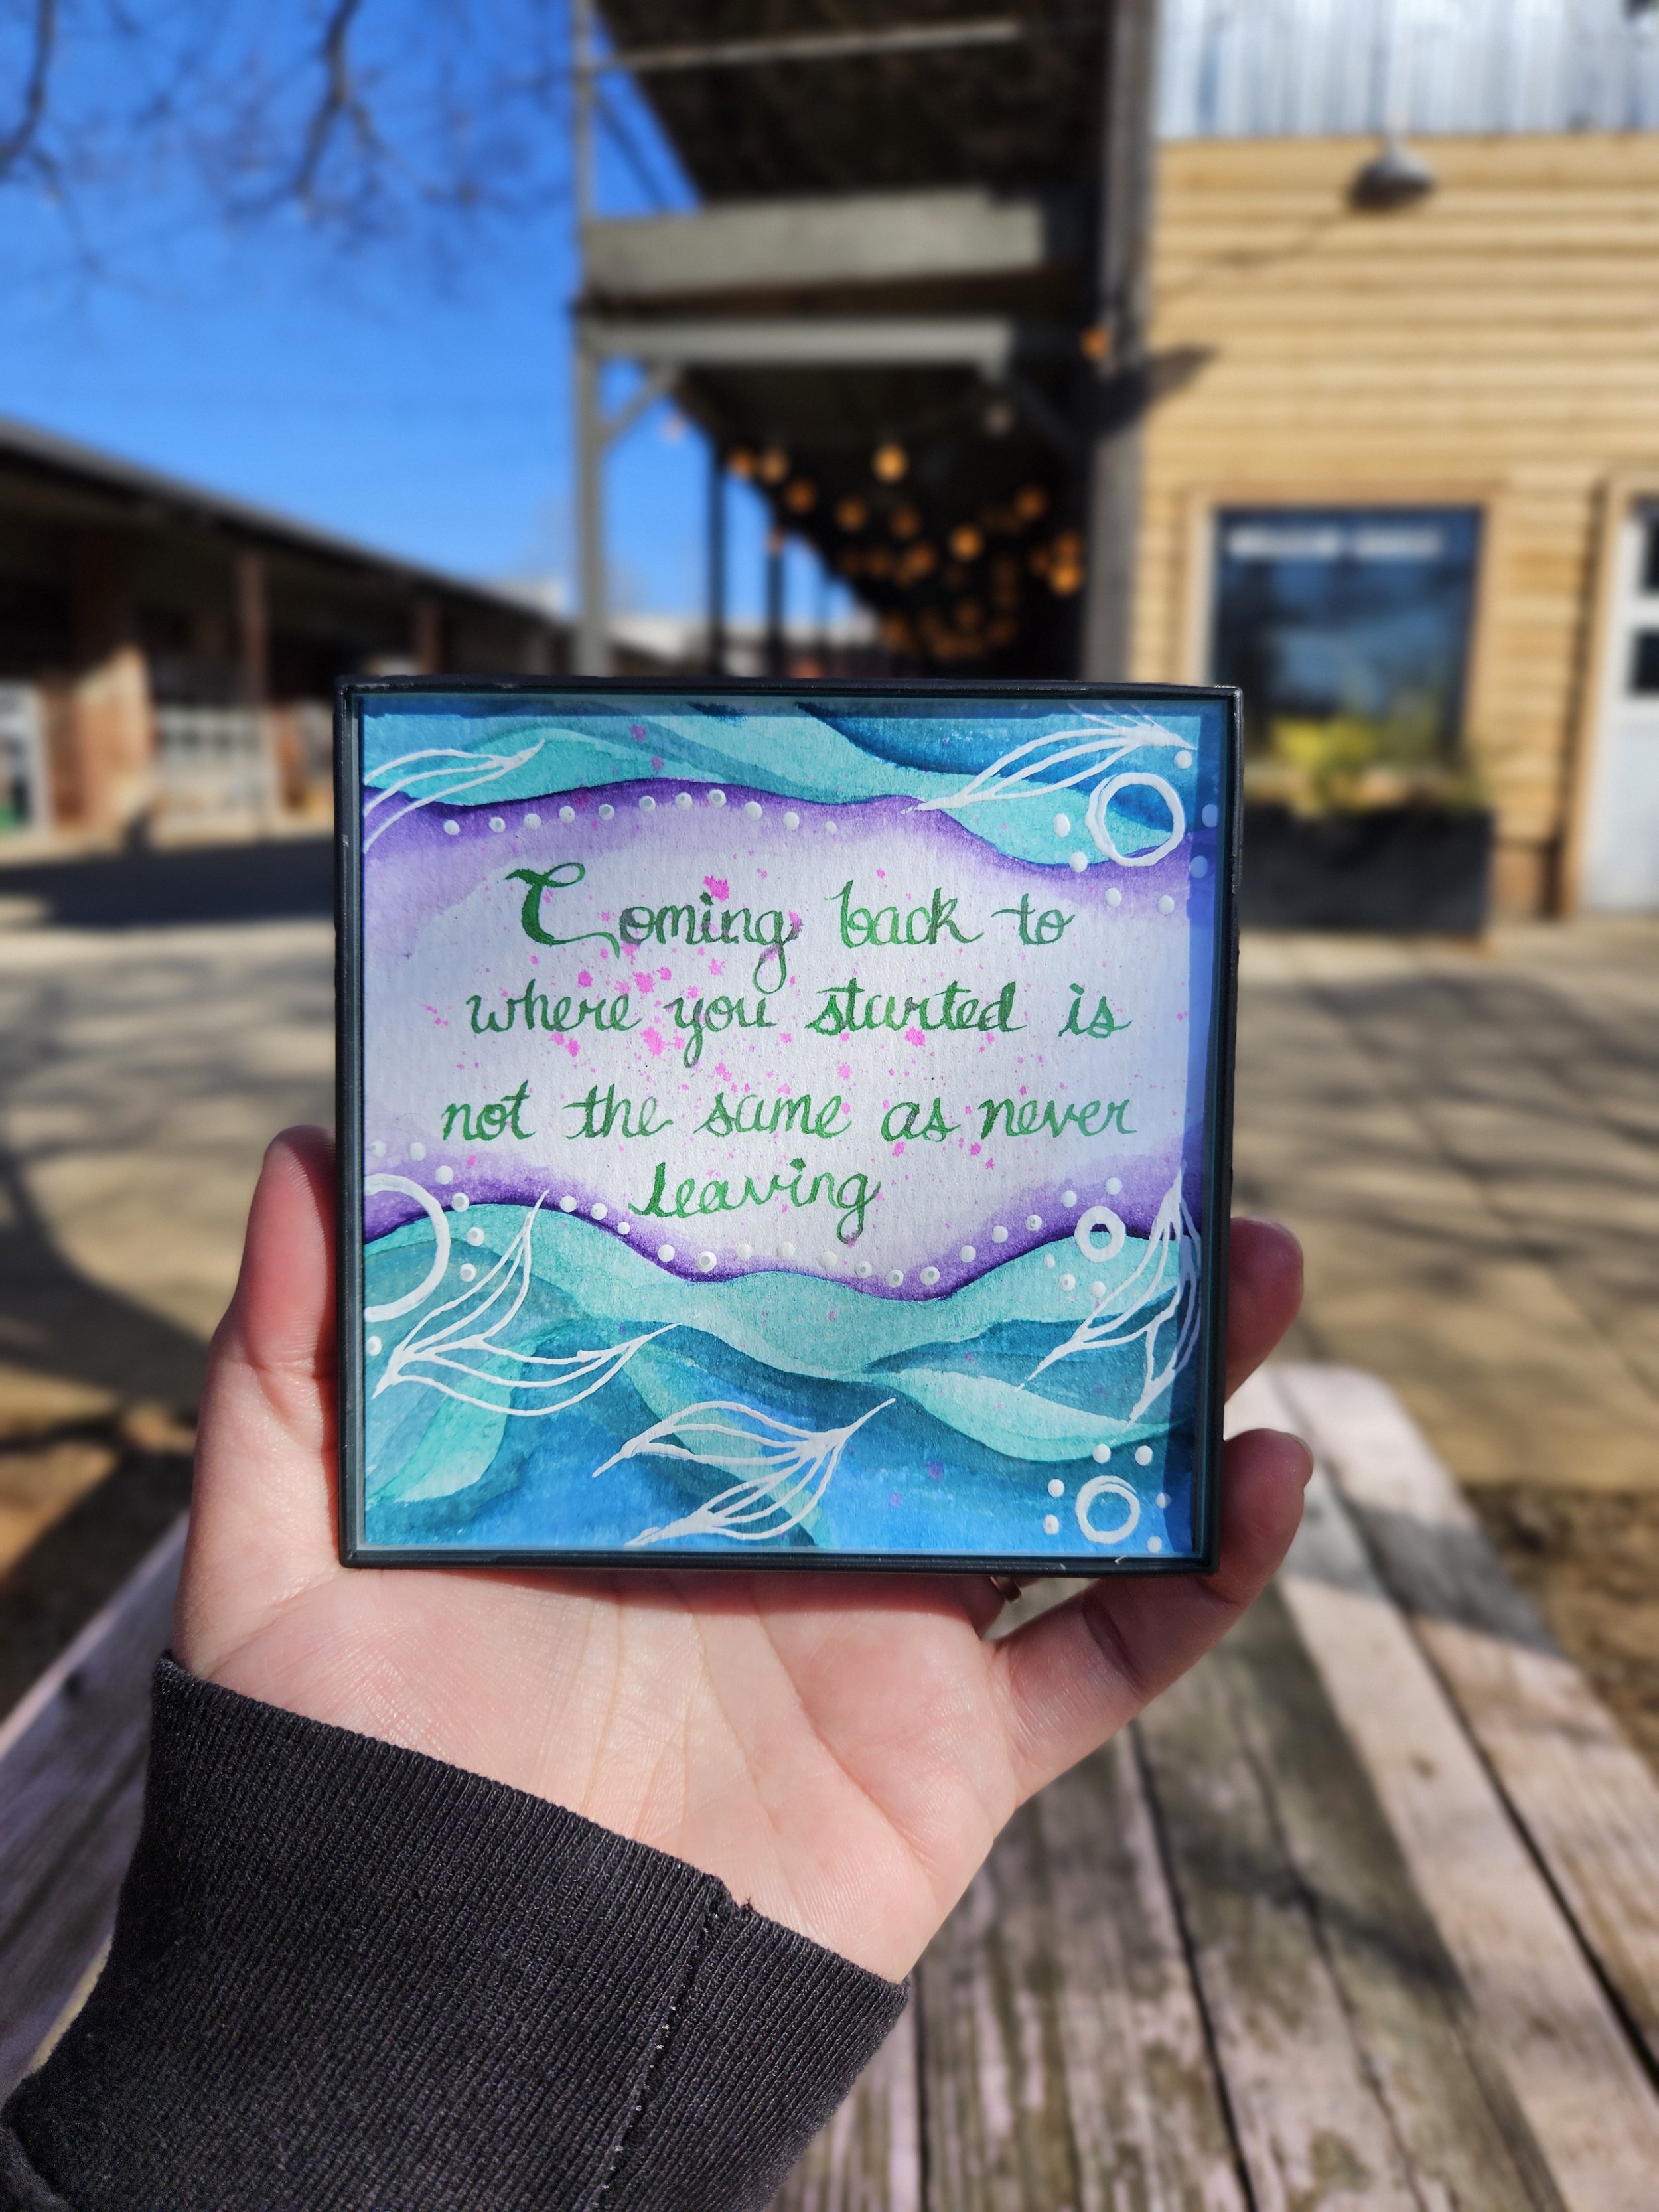 Coming back to
where you started is
not the same as never
leaving